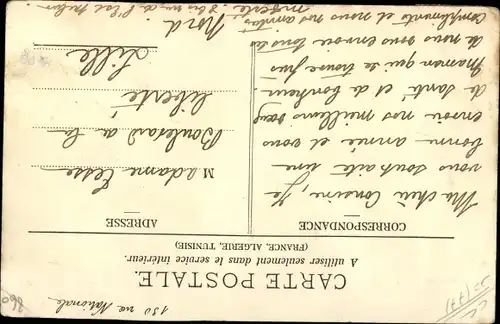 130 rue Nationale
CARTE POSTALE.
A utiliser seulement dans le service intérieur.
(FRANCE, ALGERIE, TUNISIE)
CORRESPONDANCE
ADRESSE
Ma chère Cousine, Je
vous souhaite une
bonne année et vous
envoie nos meilleurs vœux
de santé et de bonheur
Maman qui se trouve près
de nous vous envoie tous ses
compliments et nous nos amitiés
Madame Cesse
Boulevard de la
Liberté
Lille
Nord.